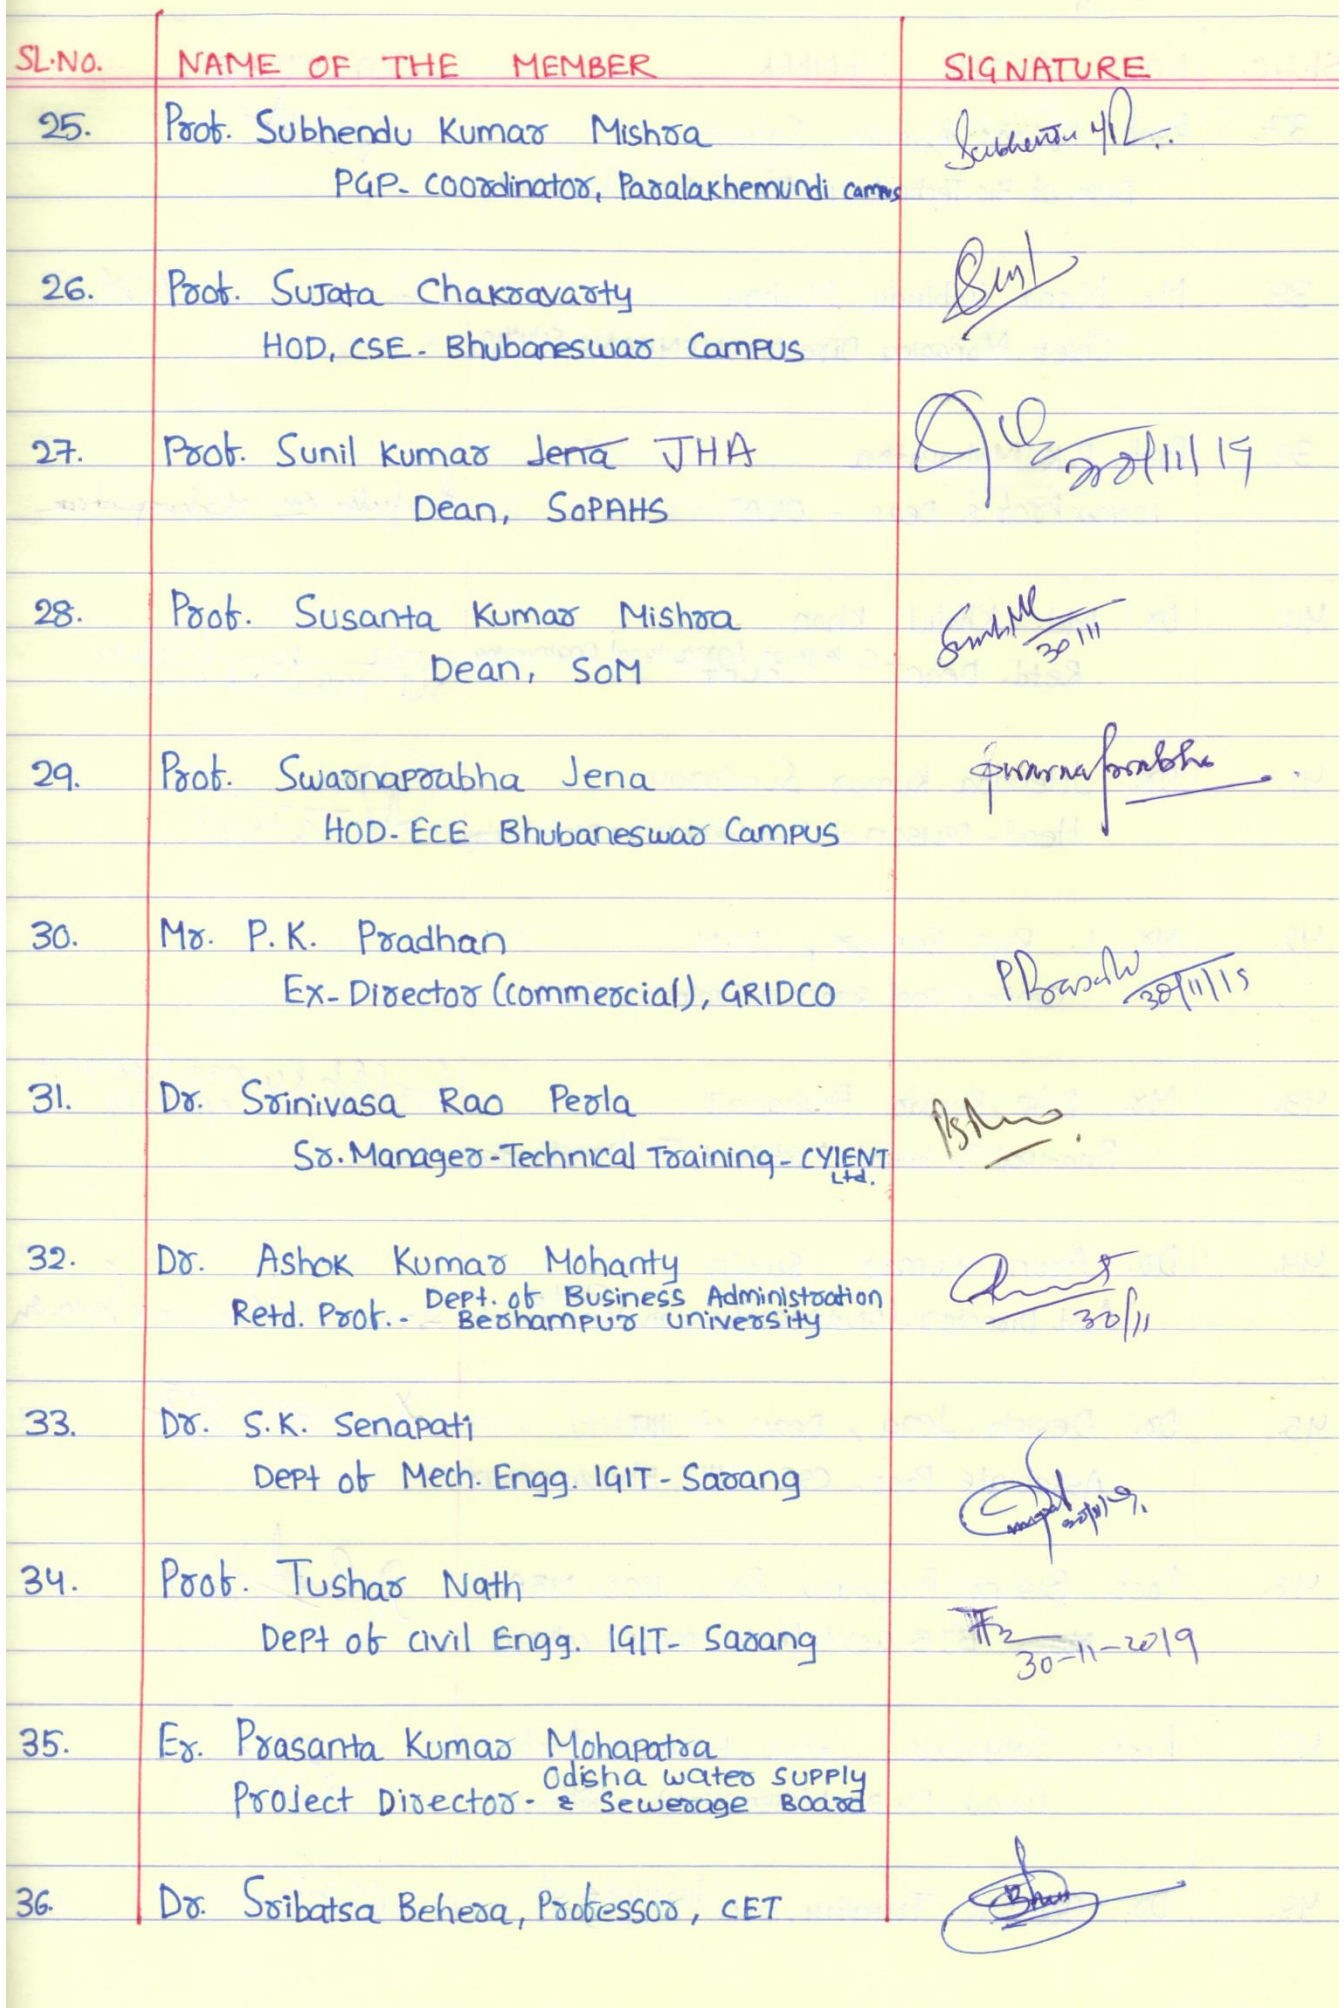 SL.NO. NAME OF THE MEMBER SIGNATURE
25. Prof. Subhendu Kumar Mishra
PGP- Coordinator, Paralakhemundi Campus
26. Prof. Sujata Chakravarty
HOD, CSE- Bhubaneswar Campus
27. Prof. Sunil Kumar Jena JHA
30/11/19
Dean, SoPAHS
28. Prof. Susanta Kumar Mishra
30/11
Dean, SoM
29. Prof. Swarnaprabha Jena Swarnaprabha
HOD- ECE Bhubaneswar Campus
30. Mr. P.K. Pradhan
Ex- Director (Commercial), GRIDCO 30/11/19
31. Dr. Srinivasa Rao Perla
Sr. Manager - Technical Training - CYIENT
Ltd.
32. Dr. Ashok Kumar Mohanty
Dept. of Business Administration
Retd. Prof. - Berhampur University 30/11
33. Dr. S.K. Senapati
Dept of Mech. Engg. IGIT - Sarang
34. Prof. Tushar Nath
Dept of Civil Engg. IGIT- Sarang 30-11-2019
35. Er. Prasanta Kumar Mohapatra
Odisha Water Supply
Project Director - & Sewerage Board
36. Dr. Sribatsa Behera, Professor, CET